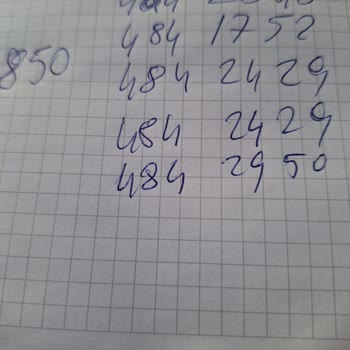 484 1752
850
484 2429
484 2429
484 2950